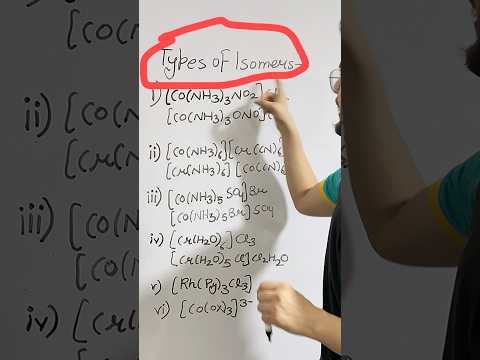 Types of Isomers-
i) [Co(NH3)3NO2]
[Co(NH3)3ONO]
ii) [Co(NH3)6][Cr(CN)6]
[Cr(NH3)6][Co(CN)6]
iii) [Co(NH3)5SO4]Br
[Co(NH3)5Br]SO4
iv) [Cr(H2O)6]Cl3
[Cr(H2O)5Cl]Cl2H2O
v) [Rh(Py)3Cl3]
vi) [Co(ox)3]3-